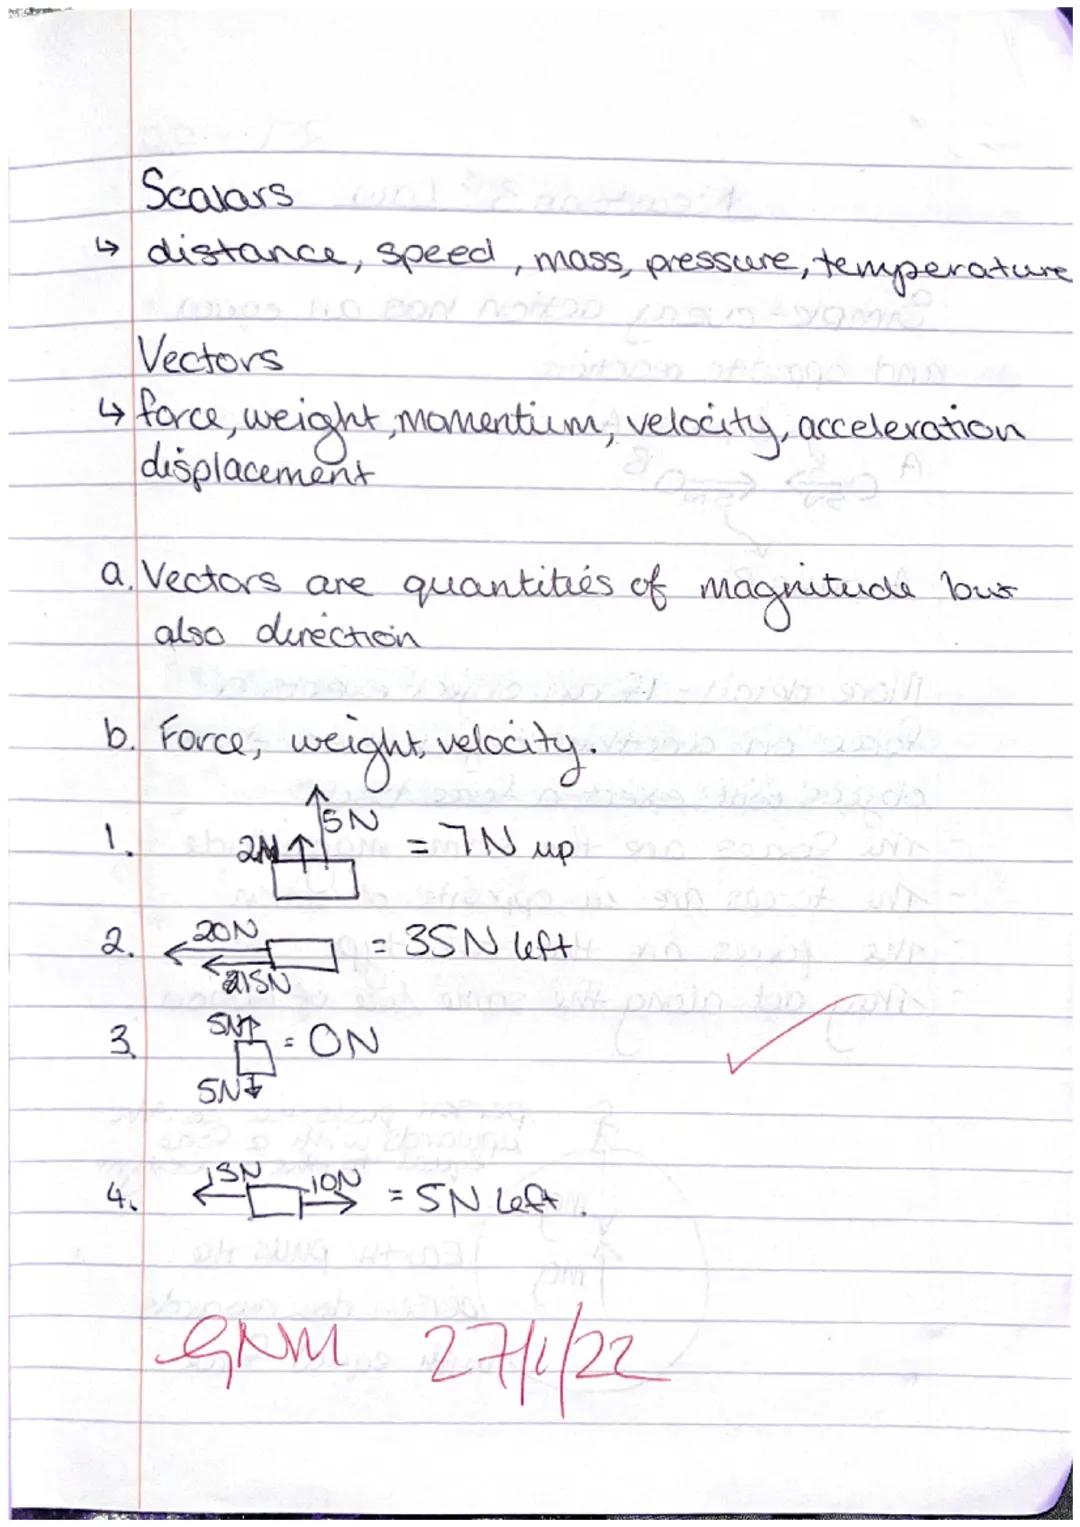 Scalars
↳ distance, speed, mass, pressure, temperature
Vectors
↳ force, weight, momentium, velocity, acceleration
displacement
a. Vectors are quantities of magnitude but
also direction
b. Force, weight, velocity.
1. 2N 5N = 7N up
2. 20N 15N = 35N left
3. 5N 5N = 0N
4. 15N 10N = 5N left.
GNM 27/1/22